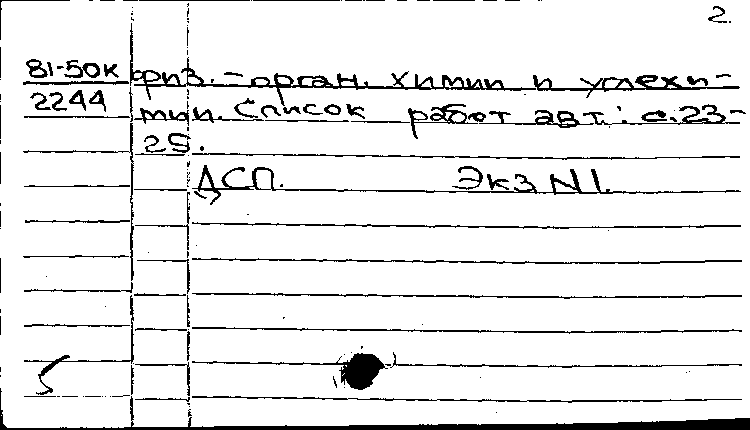 2.
81-50к физ.-орган. химии и углехи-
2244 мии. Список работ авт.: с.23-
25.
ДСП. Экз N1.